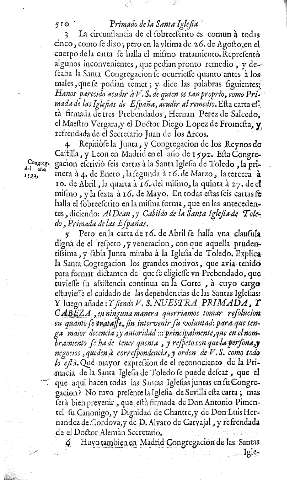 510 Primado de la Santa Iglesia
3 La circunstancia de el sobrescrito es comun à todas
cinco, como se dixo; pero en la ultima de 26. de Agosto, en el
cuerpo de la carta se halla el mismo tratamiento. Representa
algunos inconvenientes, que podian pronto remedio, y de-
seaba la Santa Congregacion se ocurriesse quanto antes à los
males, que se podian temer; y dice las palabras siguientes:
Hanos parecido acudir à V. S. de quien es tan proprio, como Pri-
mada de las Iglesias de España, acudir al remedio. Esta carta està
firmada de tres Prebendados, Hernan Perez de Salcedo,
el Maestro Vergara, y el Doctor Diego Lopez de Fromesta, y
refrendada de el Secretario Juan de los Arcos.
Congreg.
del año
1592.
4 Repitiòse la Junta, y Congregacion de los Reynos de
Castilla, y Leon en Madrid en el año de 1592. Esta Congre-
gacion escriviò seis cartas à la Santa Iglesia de Toledo, la pri-
mera à 4. de Enero, la segunda à 16. de Marzo, la tercera à
10. de Abril, la quarta à 16. del mismo, la quinta à 27. de el
mismo, y la sexta à 16. de Mayo. En todas estas seis cartas se
halla el sobrescrito en la misma forma, que en las anteceden-
tes, diciendo: Al Dean, y Cabildo de la Santa Iglesia de Tole-
do, Primada de las Españas.
5 Pero en la carta de 16. de Abril se halla una clausula
digna de el respeto, y veneracion, con que aquella pruden-
tissima, y sabia Junta miraba à la Iglesia de Toledo. Explica
la Santa Congregacion los grandes motivos, que avia tenido
para formar dictamen de que se eligiesse un Prebendado, que
tuviesse su assistencia continua en la Corte, à cuyo cargo
estuviesse el cuidado de las dependencias de las Santas Iglesias:
Y luego añade: Y siendo V. S. NUESTRA PRIMADA, Y
CABEZA, en ninguna manera querriamos tomar resolucion
en quanto se tratasse, sin intervenir su voluntad; para que ten-
ga mayor decencia, y autoridad; y principalmente, que en el nom-
bramiento se ha de tener quenta, y respeto con que la persona, y
negocios, queden à correspondencia, y orden de V. S. como todo
lo està. Què mayor expression de el reconocimiento de la Pri-
macia de la Santa Iglesia de Toledo se puede desear, que el
que aqui hacen todas las Santas Iglesias juntas en su Congre-
gacion? No tuvo presente la Iglesia de Sevilla esta carta; mas
serà bien prevenir, que està firmada de Don Antonio Pimen-
tel su Canonigo, y Dignidad de Chantre, y de Don Luis Her-
nandez de Cordova, y de D. Alvaro de Carvajal, y refrendada
de el Doctor Alemàn Secretario.
6 Huvo tambien en Madrid Congregacion de las Santas
Igle-